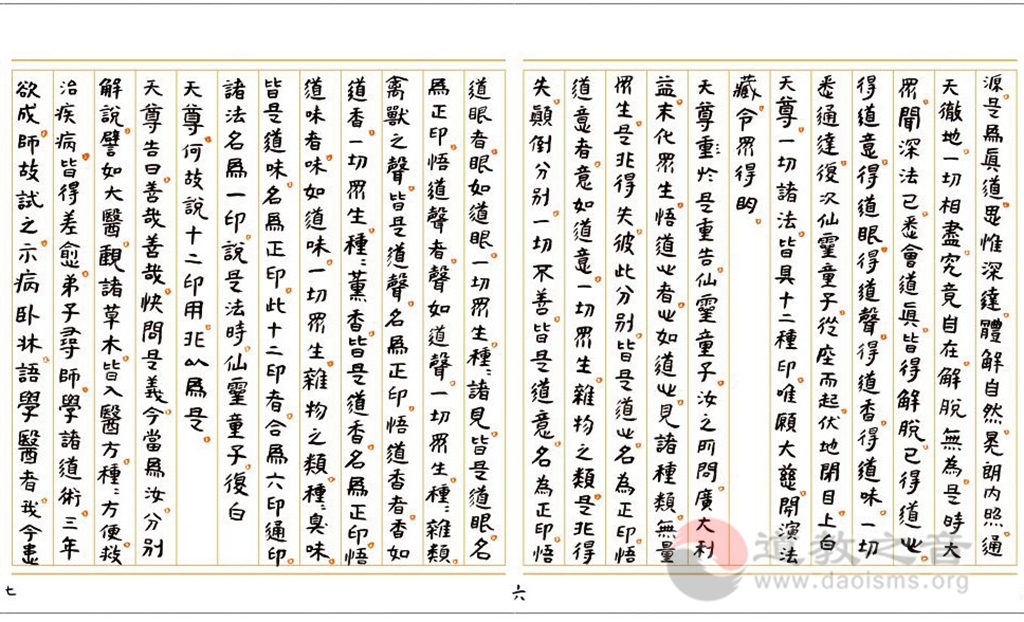 源是爲眞道思惟深達體解自然晃朗内照通
天徹地一切相盡究竟自在解脫無為是時大
眾聞深法已悉會道眞皆得解脫已得道心
得道意得道眼得道聲得道香得道味一切
悉通達復次仙靈童子從座而起伏地閉目上白
天尊一切諸法皆具十二種印唯願大慈開演法
藏令眾得明
天尊重於是重告仙靈童子汝之所問廣大利
益末化眾生悟道心者心如道心見諸種類無量
眾生是非得失彼此分別皆是道心名為正印悟
道意者意如道意一切眾生雜物之類是非得
失顛倒分別一切不善皆是道意名為正印悟
六
道眼者眼如道眼一切眾生種:諸見皆是道眼名
爲正印悟道聲者聲如道聲一切眾生種:雜類
禽獸之聲皆是道聲名爲正印悟道香者香如
道香一切眾生種:薰香皆是道香名爲正印悟
道味者味如道味一切眾生雜物之類種:臭味
皆是道味名爲正印此十二印者合爲六印通印
諸法名爲一印說是法時仙靈童子復白
天尊何故說十二印用非以爲是
天尊告曰善哉善哉快問是義今當爲汝分別
解說譬如大醫觀諸草木皆入醫方種:方便救
治疾病皆得差愈弟子尋師學諸道術三年
欲成師故試之示病卧牀語學醫者我今患
七
道教之音
www.daoisms.org